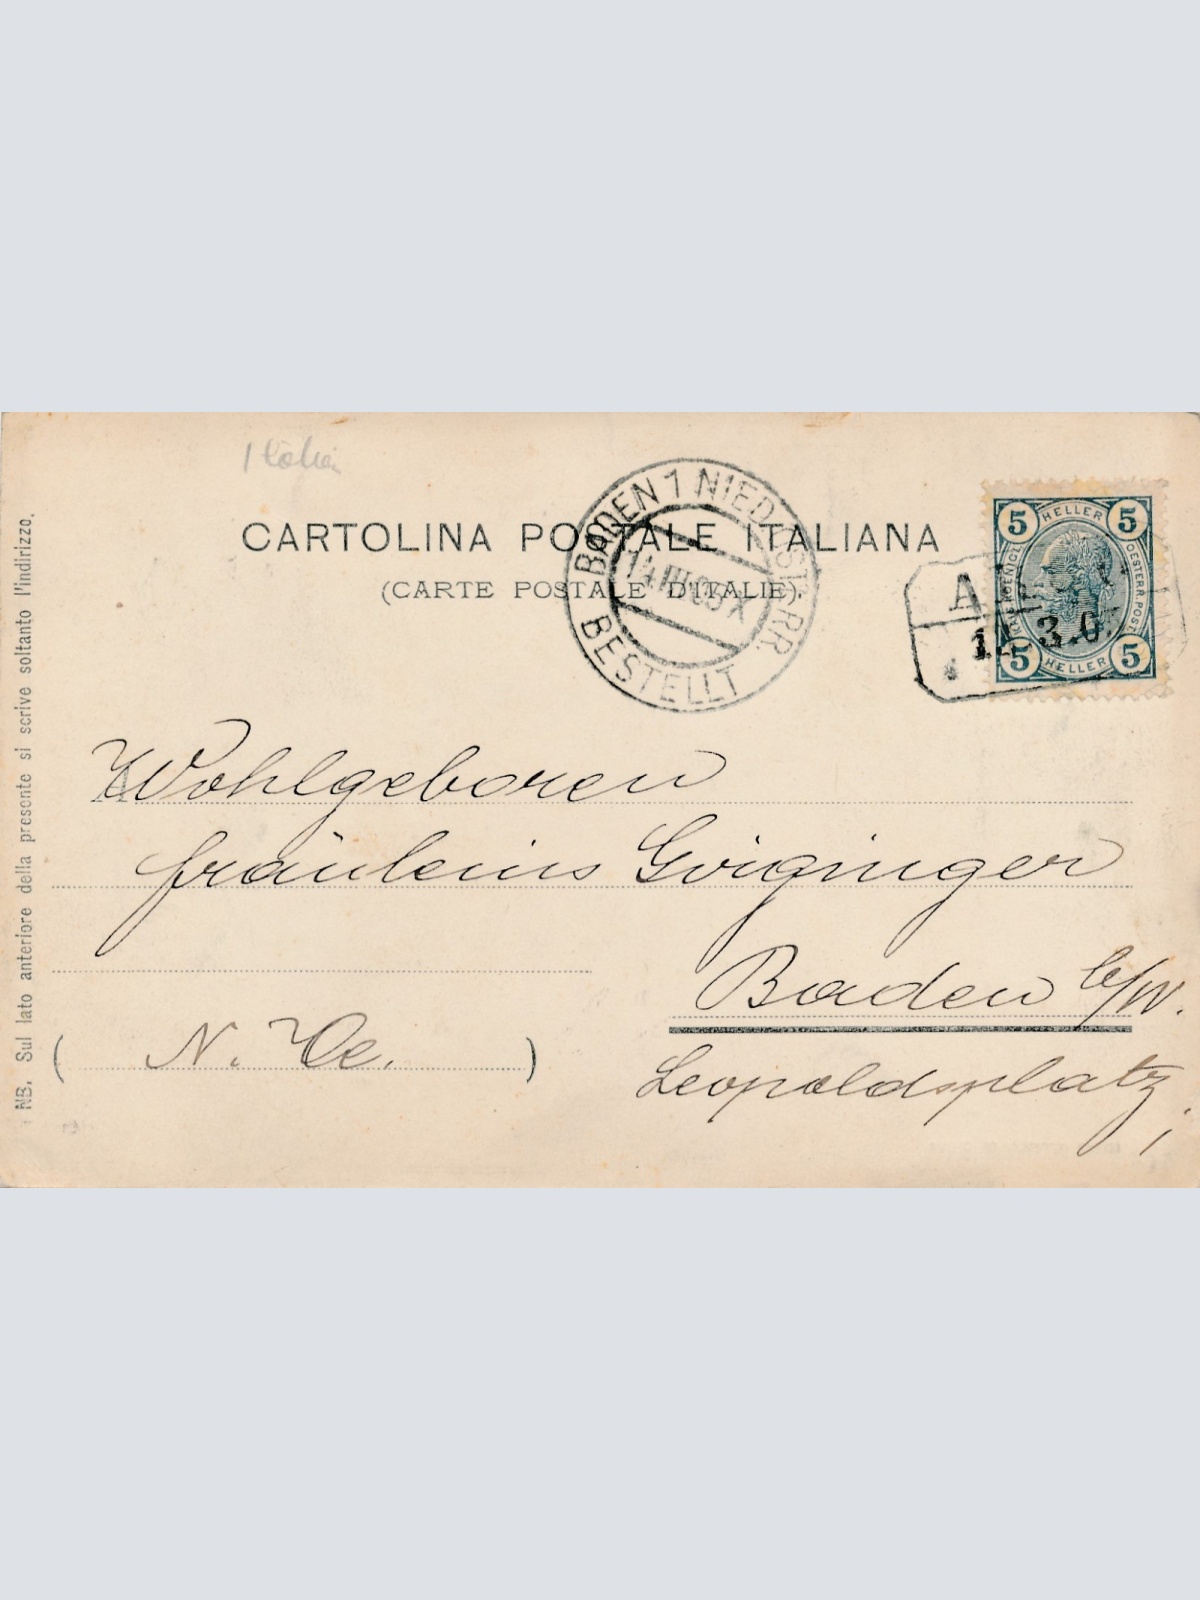 Italien
CARTOLINA POSTALE ITALIANA
(CARTE POSTALE D'ITALIE).
BADEN 1 NIED. ÖSTERR.
14 III 05 X
BESTELLT
5 HELLER 5
KAIS. KOENIGL. OESTERR. POST.
5 HELLER 5
3.0
NB. Sul lato anteriore della presente si scrive soltanto l'indirizzo.
Wohlgeboren
fräuleins
Baden b/W.
(N. Oe.)
Leopoldsplatz